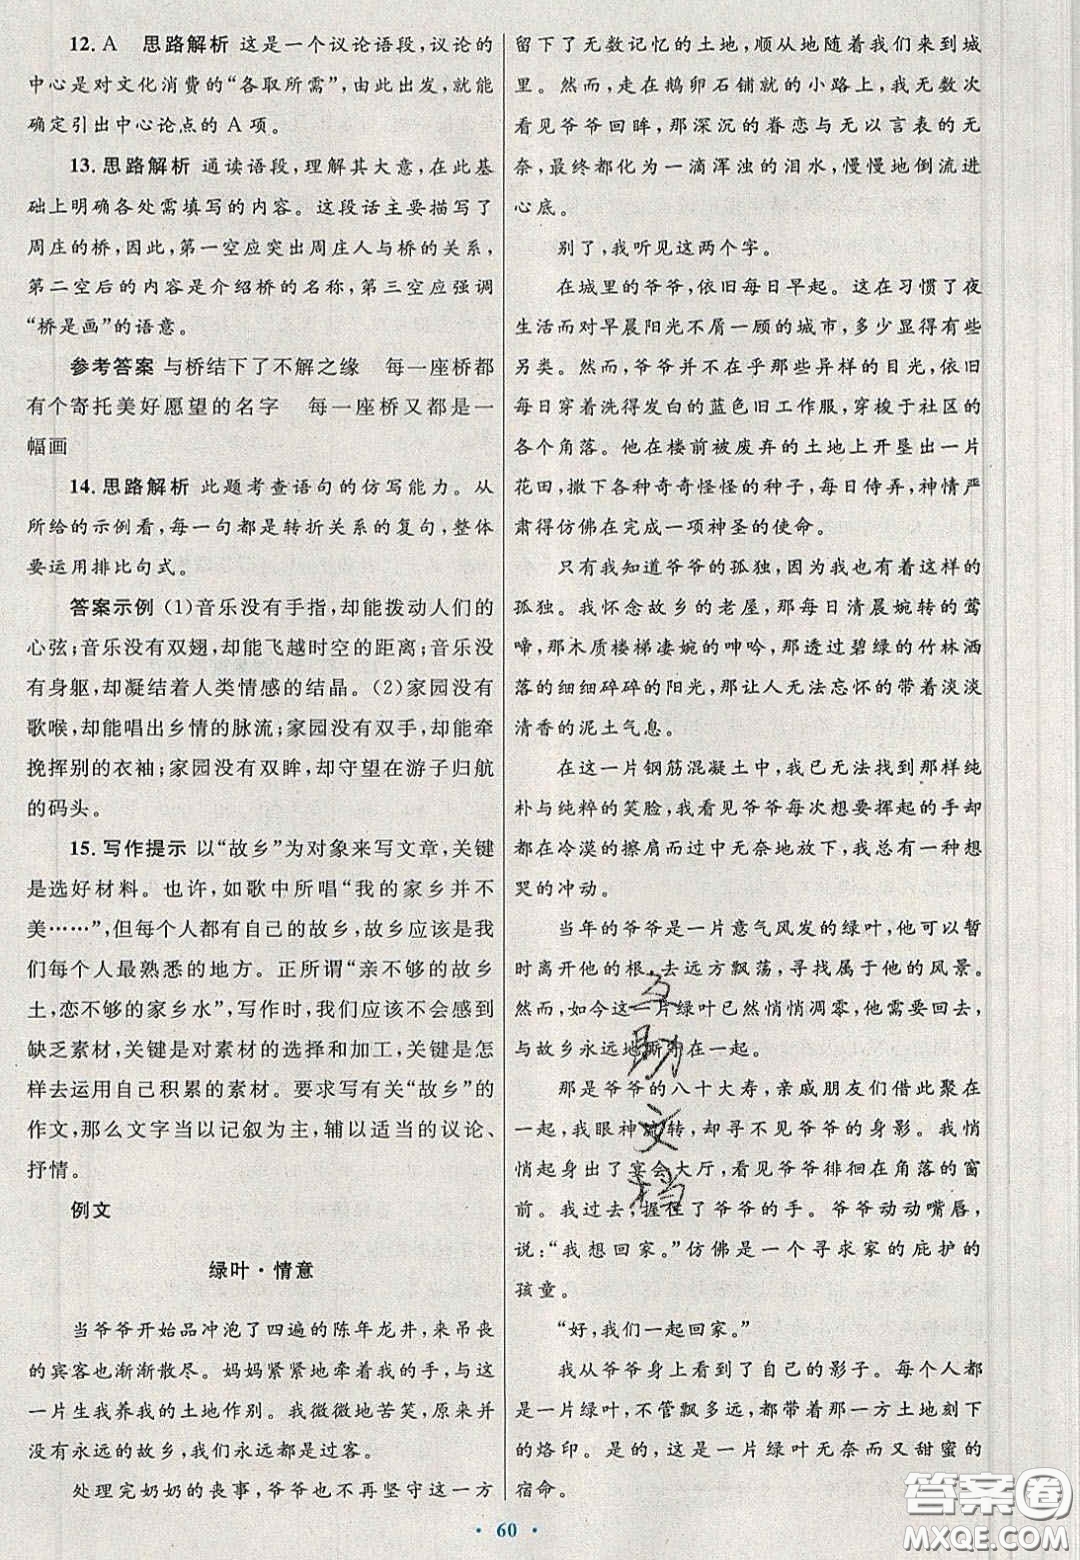 12. A　思路解析　这是一个议论语段,议论的
中心是对文化消费的“各取所需”,由此出发,就能
确定引出中心论点的 A 项。
13. 思路解析　通读语段,理解其大意,在此基
础上明确各处需填写的内容。这段话主要描写了
周庄的桥,因此,第一空应突出周庄人与桥的关系,
第二空后的内容是介绍桥的名称,第三空应强调
“桥是画”的语意。
参考答案 与桥结下了不解之缘　每一座桥都
有个寄托美好愿望的名字　每一座桥又都是一
幅画
14. 思路解析　此题考查语句的仿写能力。从
所给的示例看,每一句都是转折关系的复句,整体
要运用排比句式。
答案示例 (1)音乐没有手指,却能拨动人们的
心弦;音乐没有双翅,却能飞越时空的距离;音乐没
有身躯,却凝结着人类情感的结晶。(2)家园没有
歌喉,却能唱出乡情的脉流;家园没有双手,却能牵
挽挥别的衣袖;家园没有双眸,却守望在游子归航
的码头。
15. 写作提示　以“故乡”为对象来写文章,关键
是选好材料。也许,如歌中所唱“我的家乡并不
美……”,但每个人都有自己的故乡,故乡应该是我
们每个人最熟悉的地方。正所谓“亲不够的故乡
土,恋不够的家乡水”,写作时,我们应该不会感到
缺乏素材,关键是对素材的选择和加工,关键是怎
样去运用自己积累的素材。要求写有关“故乡”的
作文,那么文字当以记叙为主,辅以适当的议论、
抒情。
例文
绿叶·情意
当爷爷开始品冲泡了四遍的陈年龙井,来吊丧
的宾客也渐渐散尽。妈妈紧紧地牵着我的手,与这
一片生我养我的土地作别。我微微地苦笑,原来并
没有永远的故乡,我们永远都是过客。
处理完奶奶的丧事,爷爷也不再坚守这一方
留下了无数记忆的土地,顺从地随着我们来到城
里。然而,在去鹅卵石铺就的小路上,我无数次
看见爷爷回眸,那深沉的眷恋与无以言表的无
奈,最终都化为一滴浑浊的泪水,慢慢地倒流进
心底。
别了,我听见这两个字。
在城里的爷爷,依旧每日早起。这在习惯了夜
生活而对早晨阳光不屑一顾的城市,多少显得有些
另类。然而,爷爷并不在乎那些异样的目光,依旧
每日穿着洗得发白的蓝色旧工作服,穿梭于社区的
各个角落。他在楼前被废弃的土地上开垦出一片
花田,撒下各种奇奇怪怪的种子,每日侍弄,神情严
肃得仿佛在完成一项神圣的使命。
只有我知道爷爷的孤独,因为我也有着这样的
孤独。我怀念故乡的老屋,那每日清晨婉转的莺
啼,那木质楼梯凄婉的呻吟,那透过碧绿的竹林洒
落的细细碎碎的阳光,那让人无法忘怀的带着淡淡
清香的泥土气息。
在这一片钢筋混凝土中,我已无法找到那样纯
朴与纯粹的笑脸,我看见爷爷每次想要挥起的手却
都在冷漠的擦肩而过中无奈地放下,我总有一种想
哭的冲动。
当年的爷爷是一片意气风发的绿叶,他可以暂
时离开他的根,去远方飘荡,寻找属于他的风景。
然而,如今这一片绿叶已然悄悄凋零,他需要回去,
与故乡永远地厮守在一起。
那是爷爷的八十大寿,亲戚朋友们借此聚在
一起,我眼神流转,却寻不见爷爷的身影。我悄
悄起身出了宴会大厅,看见爷爷徘徊在角落的窗
前。我过去,握住了爷爷的手。爷爷动动嘴唇,
说:“我想回家。”仿佛是一个寻求家的庇护的
孩童。
“好,我们一起回家。”
我从爷爷身上看到了自己的影子。每个人都
是一片绿叶,不管飘多远,都带着那一方土地刻下
的烙印。是的,这是一片绿叶无奈而又甜蜜的
宿命。
互助文档
答案圈
MXQE.COM
· 60 ·